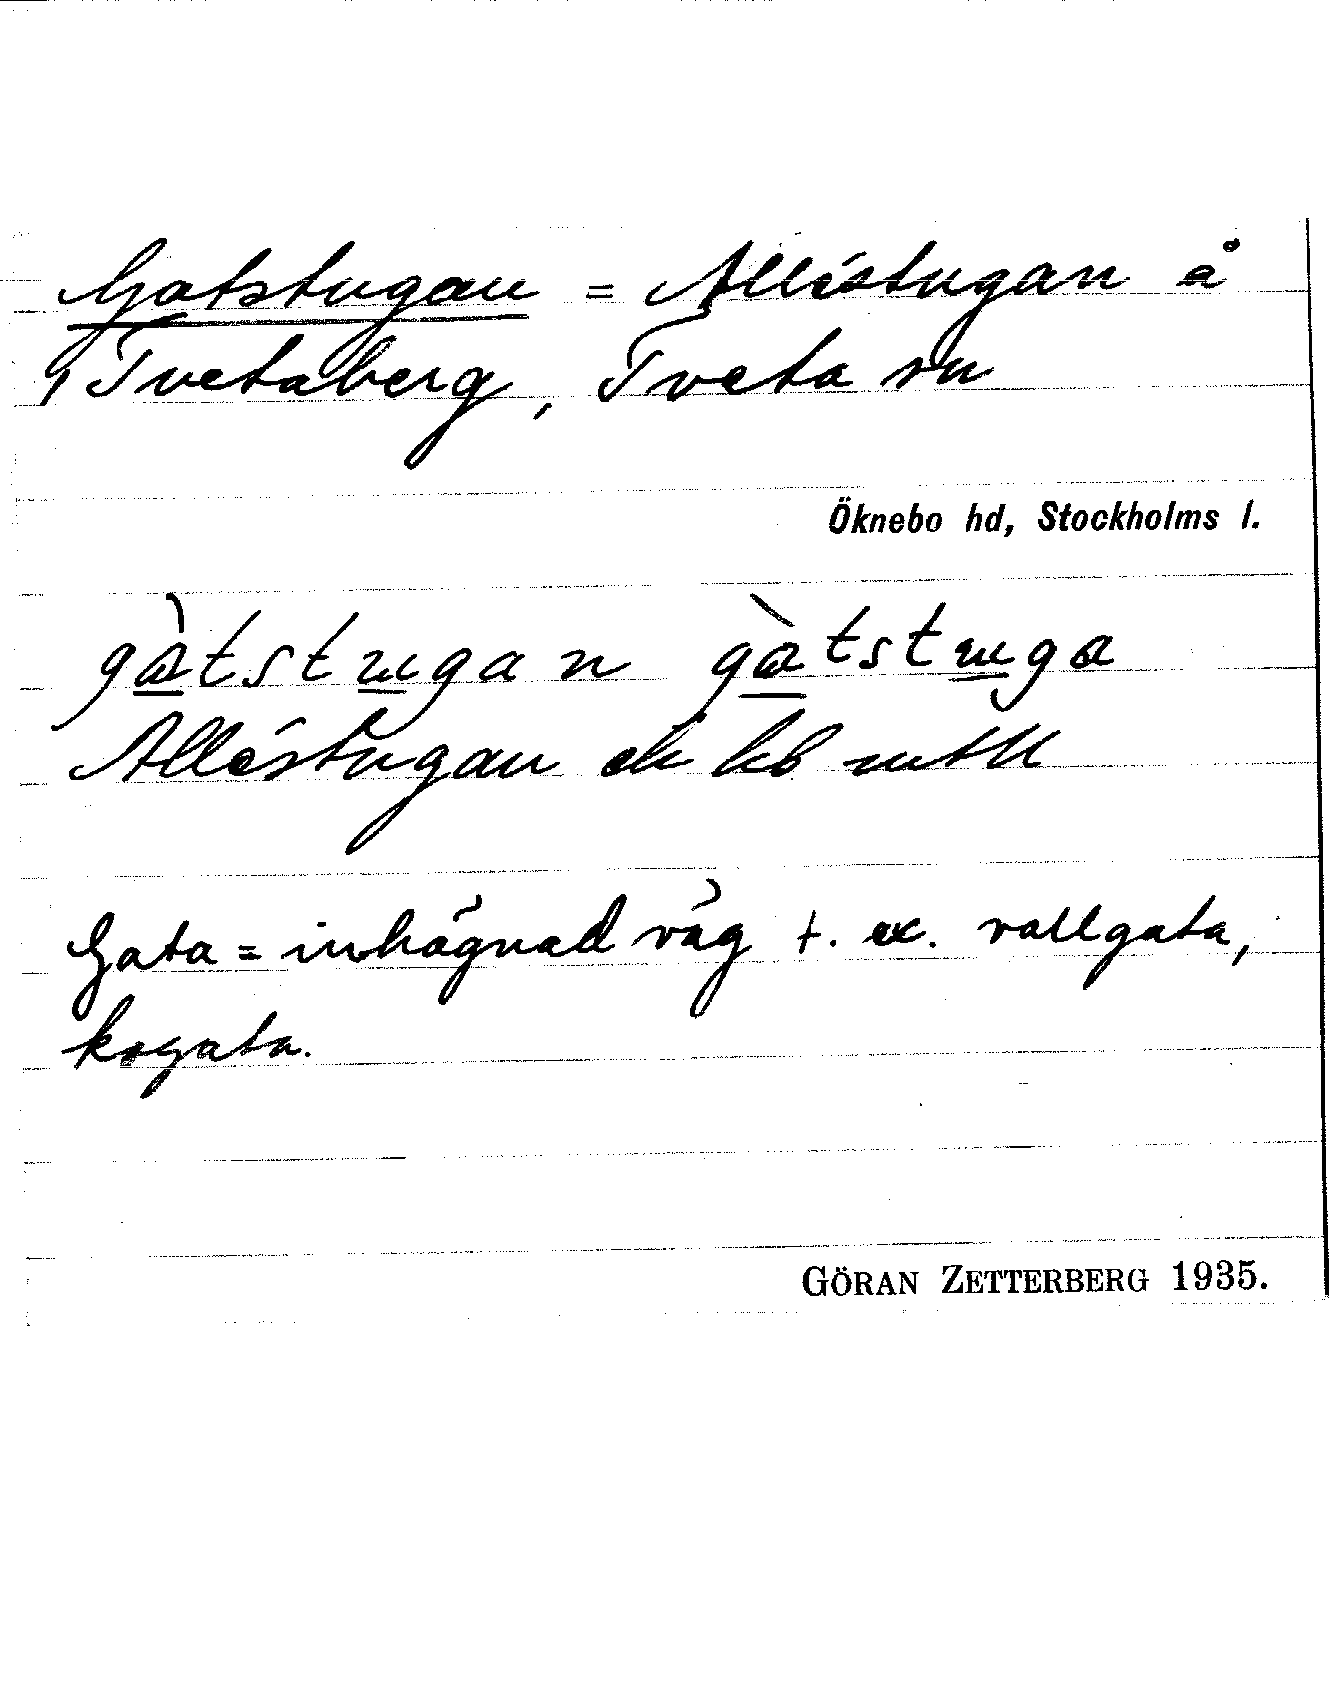 Gatstugan = Alléstugan å
Tvetaberg, Tveta sn
Öknebo hd, Stockholms l.
gàtstɯgan gàtstɯga
Alléstugan ek kb mtll
Gata = inhägnad väg t. ex. vallgata,
kogata.
GÖRAN ZETTERBERG 1935.